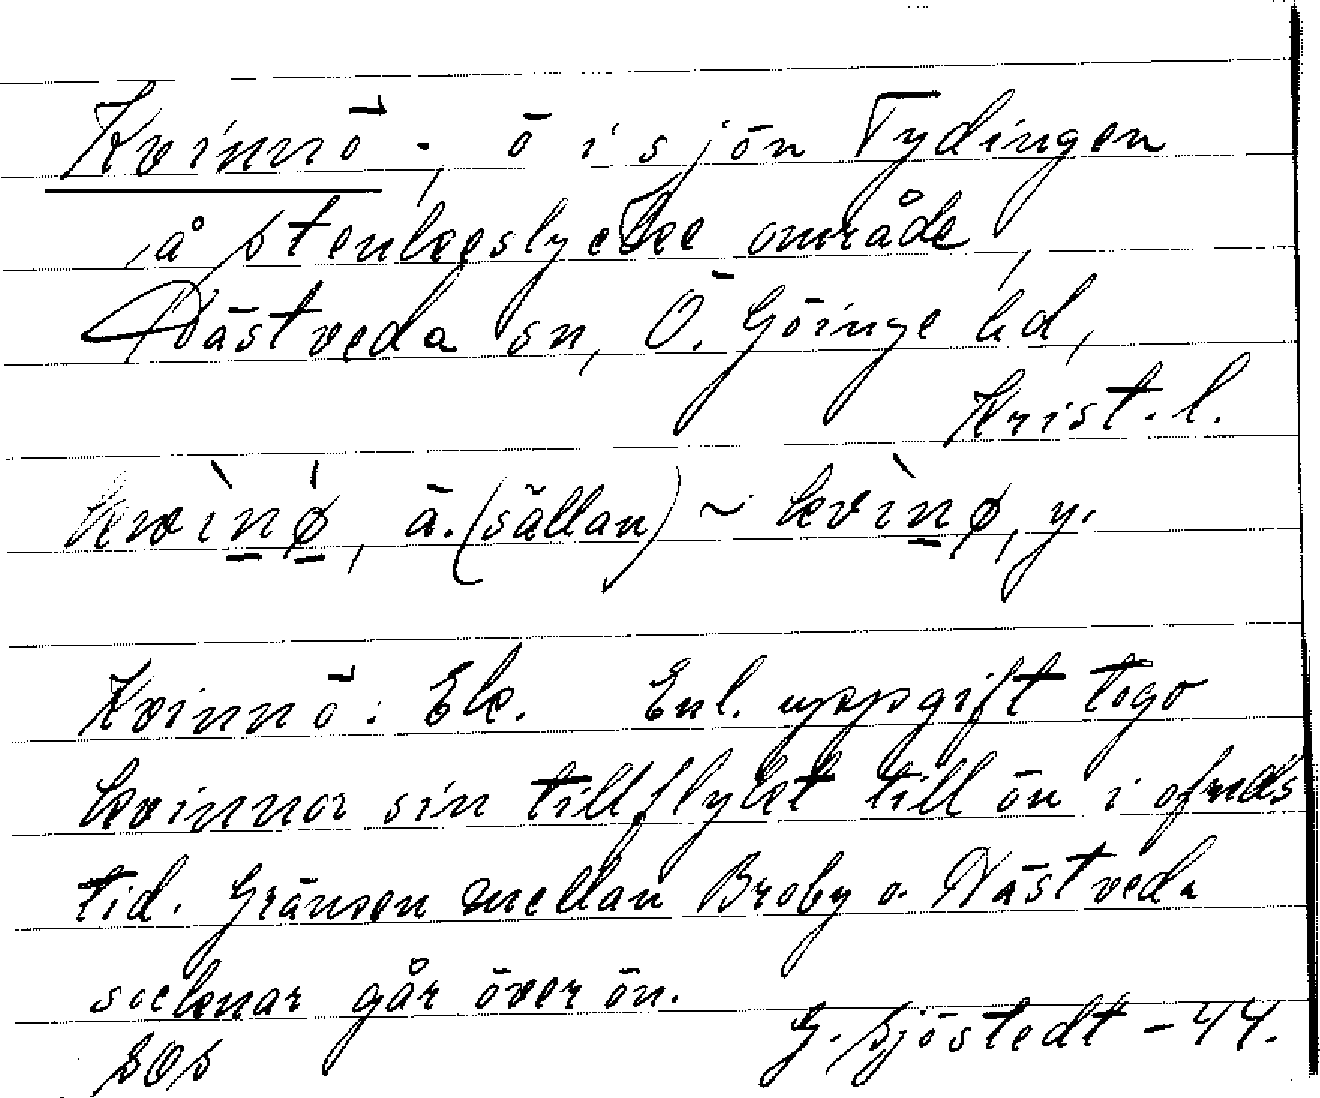 Kvinnö -, ö i sjön Tydingen
å Stenkeslycke område,
Nästveda sn, Ö. Göinge hd,
Krist. l.
kvìnǿ, ä. (sällan) ~ kvìnø, y.
Kvinnö: Ek. Enl. uppgift togo
kvinnor sin tillflykt till ön i ofreds
tid. Gränsen mellan Broby o. Nästveda
socknar går över ön.
G. Sjöstedt - 44.
SOS